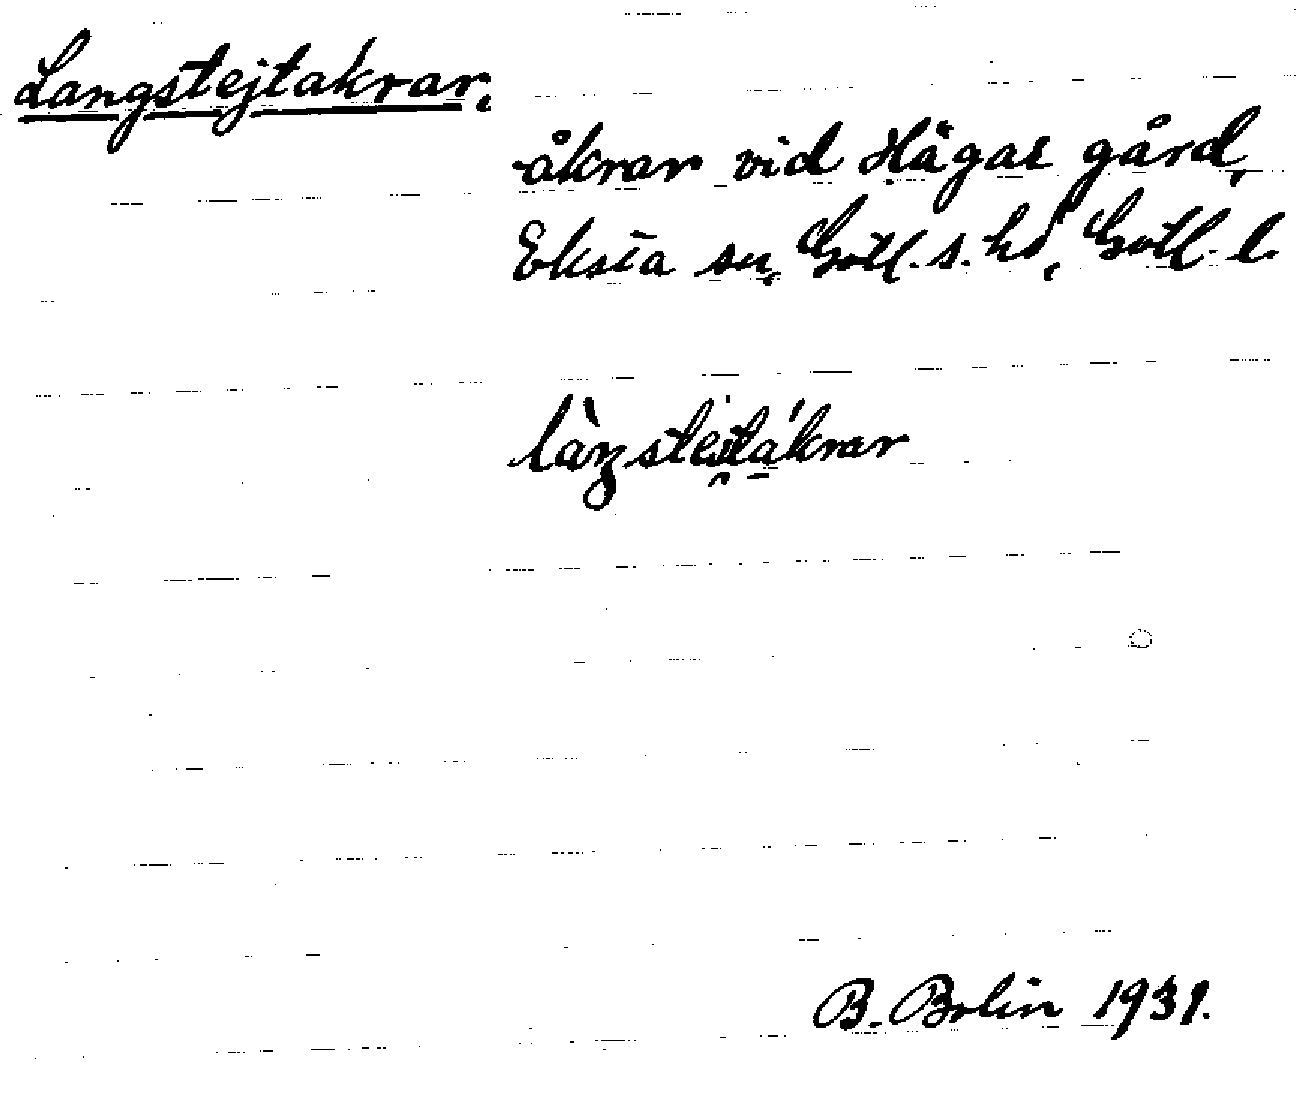 Langstejtakrar.
åkrar vid Hägar gård,
Eksta sn, Gotl. s. hd, Gotl. l.
B. Bolin 1931.